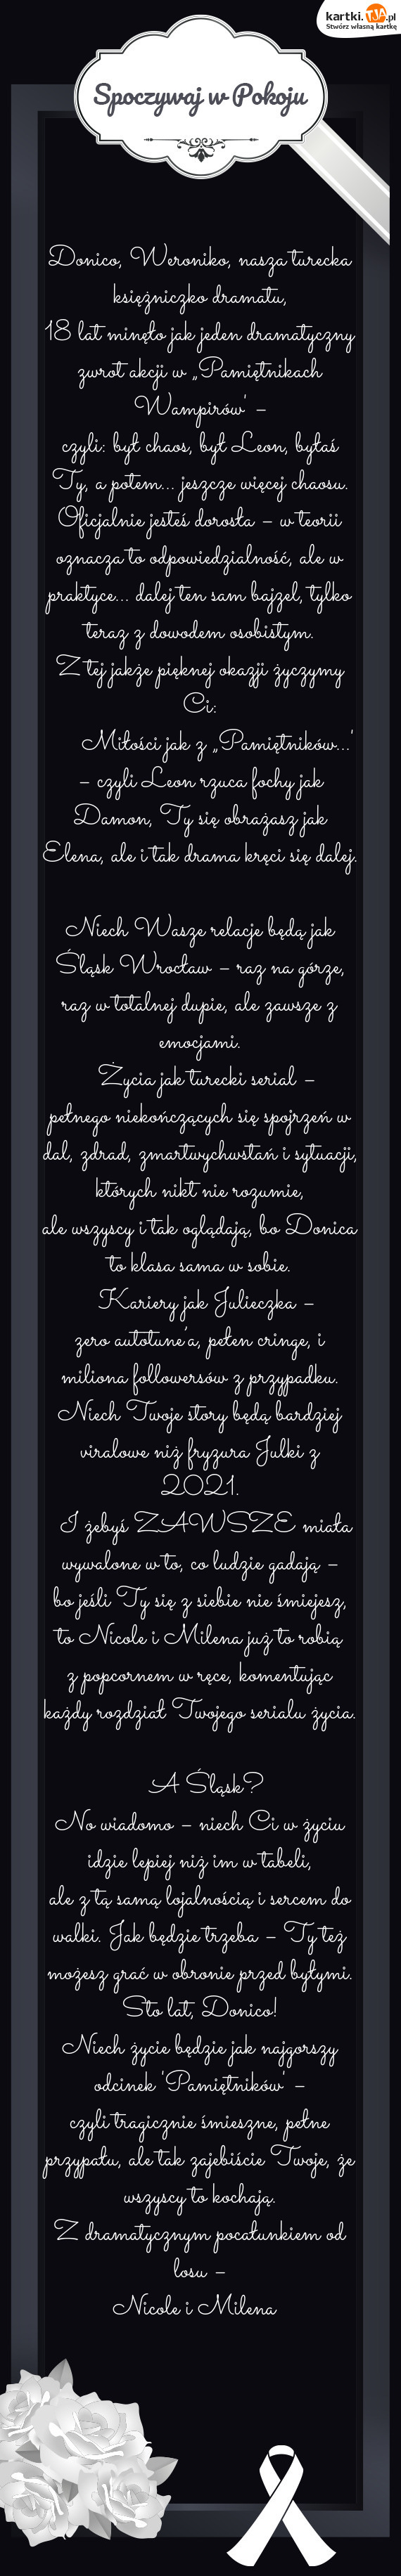 kartki.TJA.pl
Stwórz własną kartkę
Spoczywaj w Pokoju
Donico, Weroniko, nasza turecka
księżniczko dramatu,
18 lat minęło jak jeden dramatyczny
zwrot akcji w „Pamiętnikach
Wampirów' –
czyli: był chaos, był Leon, byłaś
Ty, a potem... jeszcze więcej chaosu.
Oficjalnie jesteś dorosła – w teorii
oznacza to odpowiedzialność, ale w
praktyce... dalej ten sam bajzel, tylko
teraz z dowodem osobistym.
Z tej jakże pięknej okazji życzymy
Ci:
Miłości jak z „Pamiętników...'
– czyli Leon rzuca fochy jak
Damon, Ty się obrażasz jak
Elena, ale i tak drama kręci się dalej.
Niech Wasze relacje będą jak
Śląsk Wrocław – raz na górze,
raz w totalnej dupie, ale zawsze z
emocjami.
Życia jak turecki serial –
pełnego niekończących się spojrzeń w
dal, zdrad, zmartwychwstań i sytuacji,
których nikt nie rozumie,
ale wszyscy i tak oglądają, bo Donica
to klasa sama w sobie.
Kariery jak Julieczka –
zero autotune'a, pełen cringe, i
miliona followersów z przypadku.
Niech Twoje story będą bardziej
viralowe niż fryzura Julki z
2021.
I żebyś ZAWSZE miała
wywalone w to, co ludzie gadają –
bo jeśli Ty się z siebie nie śmiejesz,
to Nicole i Milena już to robią
z popcornem w ręce, komentując
każdy rozdział Twojego serialu życia.
A Śląsk?
No wiadomo – niech Ci w życiu
idzie lepiej niż im w tabeli,
ale z tą samą lojalnością i sercem do
walki. Jak będzie trzeba – Ty też
możesz grać w obronie przed byłymi.
Sto lat, Donico!
Niech życie będzie jak najgorszy
odcinek 'Pamiętników' –
czyli tragicznie śmieszne, pełne
przypału, ale tak zajebiście Twoje, że
wszyscy to kochają.
Z dramatycznym pocałunkiem od
losu –
Nicole i Milena